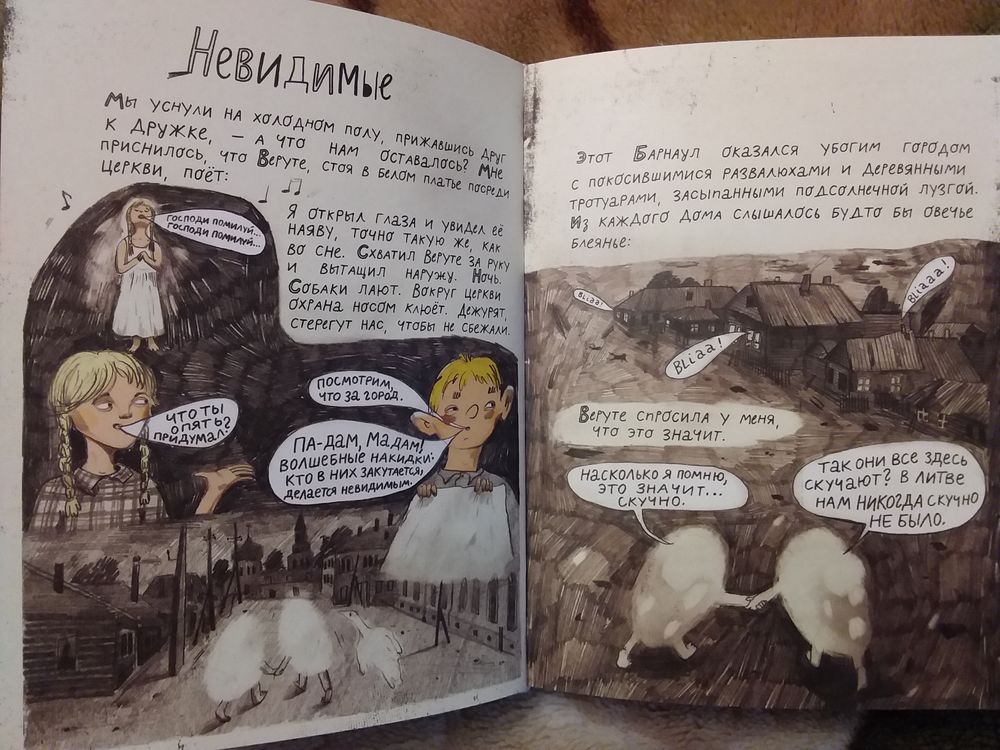 Невидимые
Мы уснули на холодном полу, прижавшись друг
к дружке, – а что нам оставалось? Мне
приснилось, что Веруте, стоя в белом платье посреди
церкви, поёт:
Господи помилуй...
Господи помилуй...
Я открыл глаза и увидел её
наяву, точно такую же, как
во сне. Схватил Веруте за руку
и вытащил наружу. Ночь.
Собаки лают. Вокруг церкви
охрана носом клюёт. Дежурят,
стерегут нас, чтобы не сбежали.
Что ты
опять?
придумал?
Посмотрим,
что за город.
Па-дам, мадам!
Волшебные накидки:
кто в них закутается,
делается невидимым.
Этот Барнаул оказался убогим городом
с покосившимися развалюхами и деревянными
тротуарами, засыпанными подсолнечной лузгой.
Из каждого дома слышалось будто бы овечье
блеянье:
Bliaa!
Bliaaa!
Bliaa!
Веруте спросила у меня,
что это значит.
Насколько я помню,
это значит...
скучно.
Так они все здесь
скучают? В Литве
нам никогда скучно
не было.